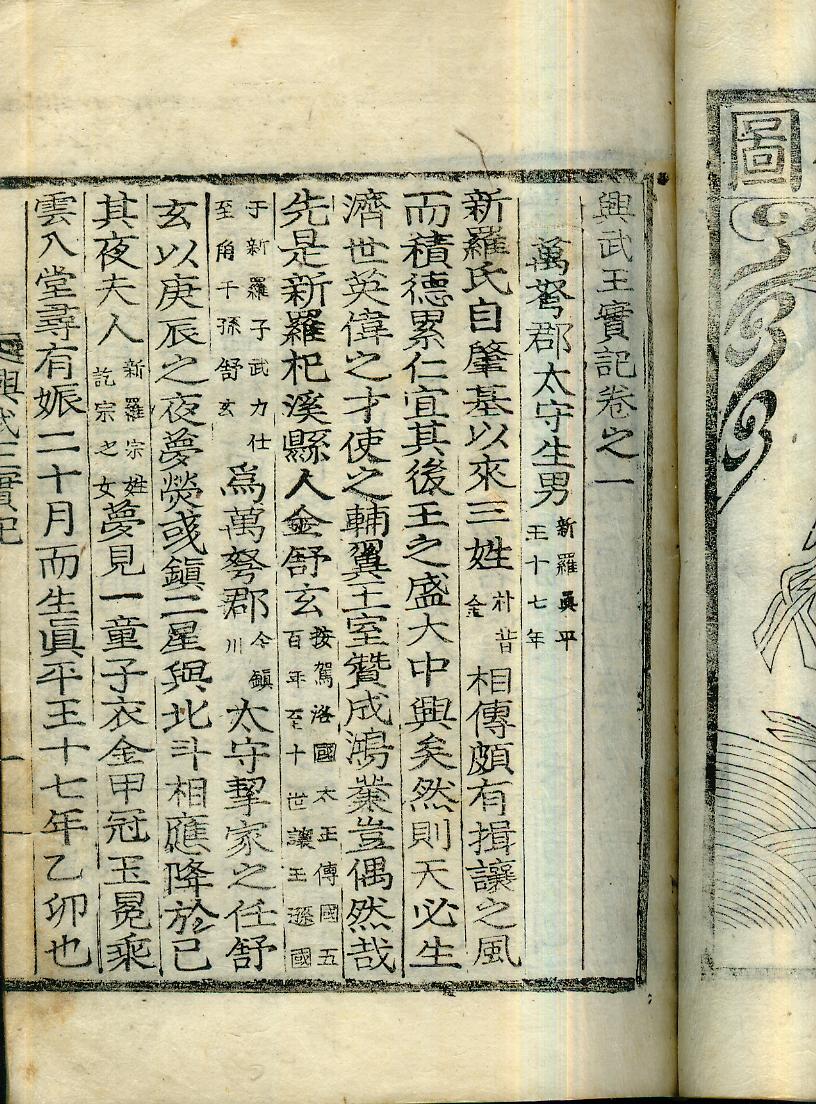 興武王實記卷之一
萬弩郡太守生男 新羅眞平王十七年
新羅氏自肇基以來三姓 朴昔金 相傳頗有揖讓之風
而積德累仁宜其後王之盛大中興矣然則天必生
濟世英偉之才使之輔翼王室贊成鴻業豈偶然哉
先是新羅杞溪縣人金舒玄 按駕洛國太王傳國五百年至十世讓王遜國
于新羅子武力仕至角干孫舒玄 爲萬弩郡 今鎭川 太守挈家之任舒
玄以庚辰之夜夢熒惑鎭二星與北斗相應降於己
其夜夫人 新羅宗姓訖宗之女 夢見一童子衣金甲冠玉冕乘
雲入堂尋有娠二十月而生眞平王十七年乙卯也
興武王實記
一
圖